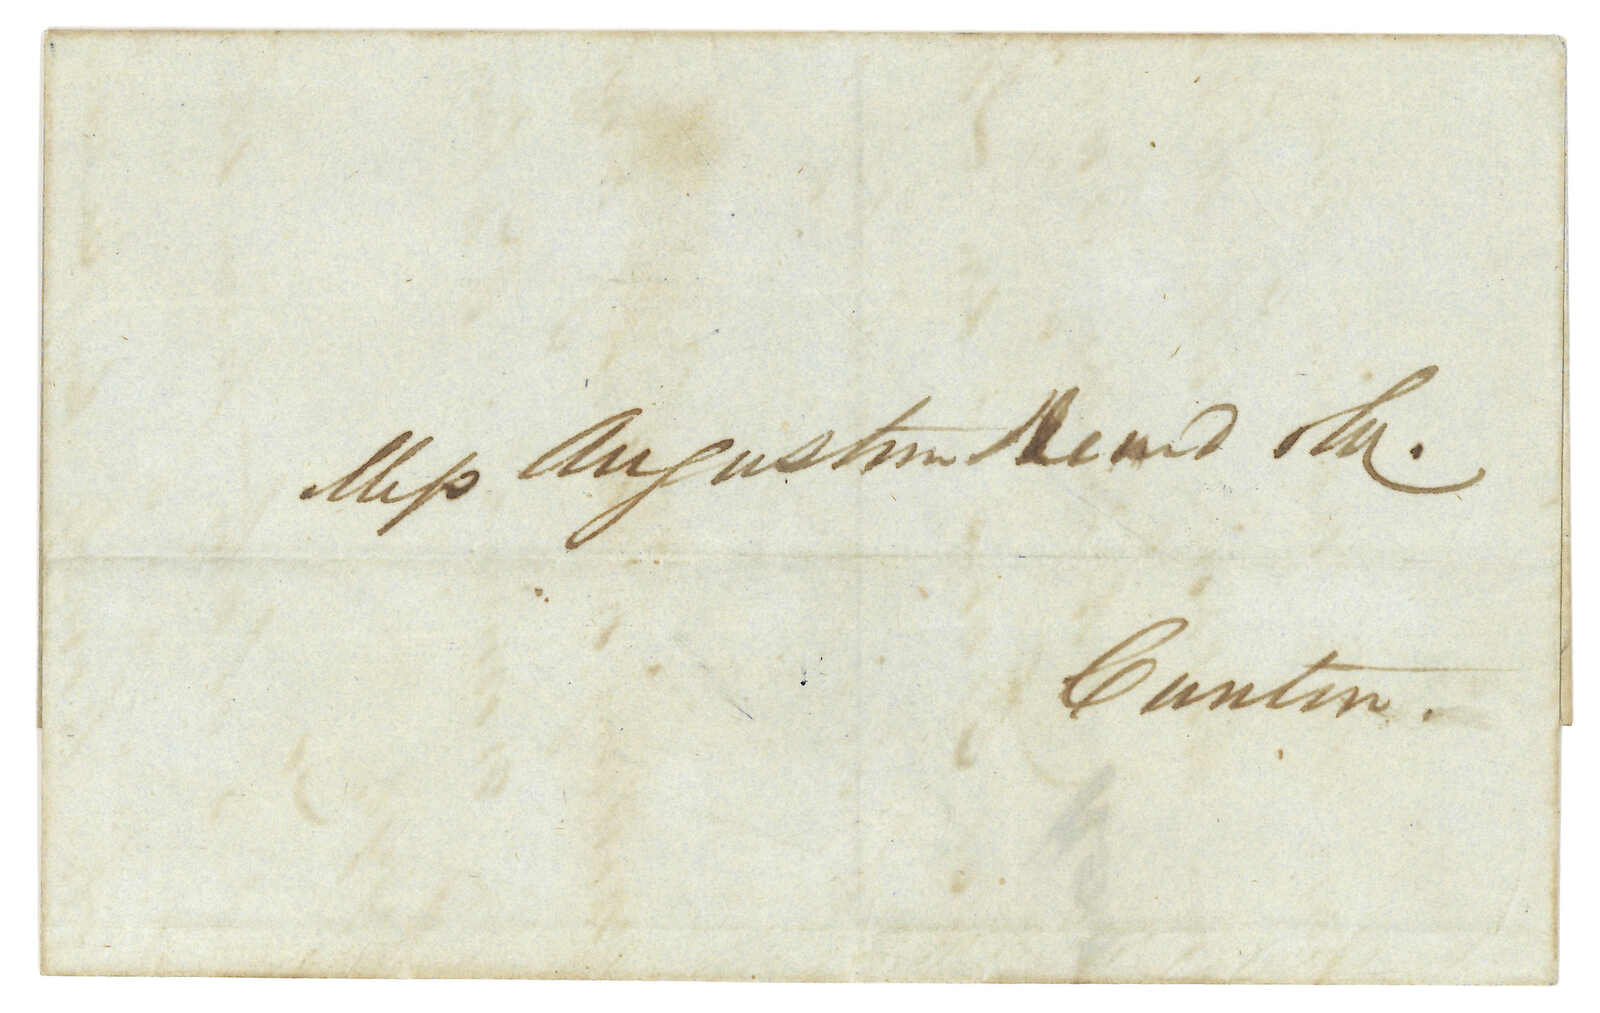 Mess Augustine Heard & Co.
Canton.